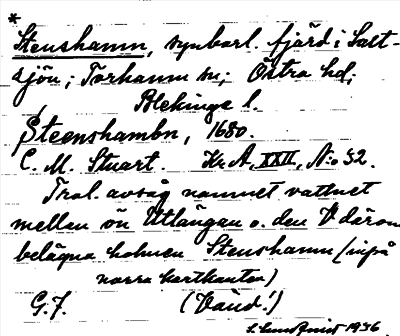 *
Stenshamn, synbarl. fjärd i Salt-
sjön; Torhamn sn; Östra hd;
Blekinge l.
Steenshambn, 1680.
C. M. Stuart. Kr. A, XXII, N:o 32.
Trol. avsåg namnet vattnet
mellan ön Utlängan o. den V därom
belägna holmen Stenshamn (inpå
norra kartkanten)
G. F. (Daúd!)
1936.